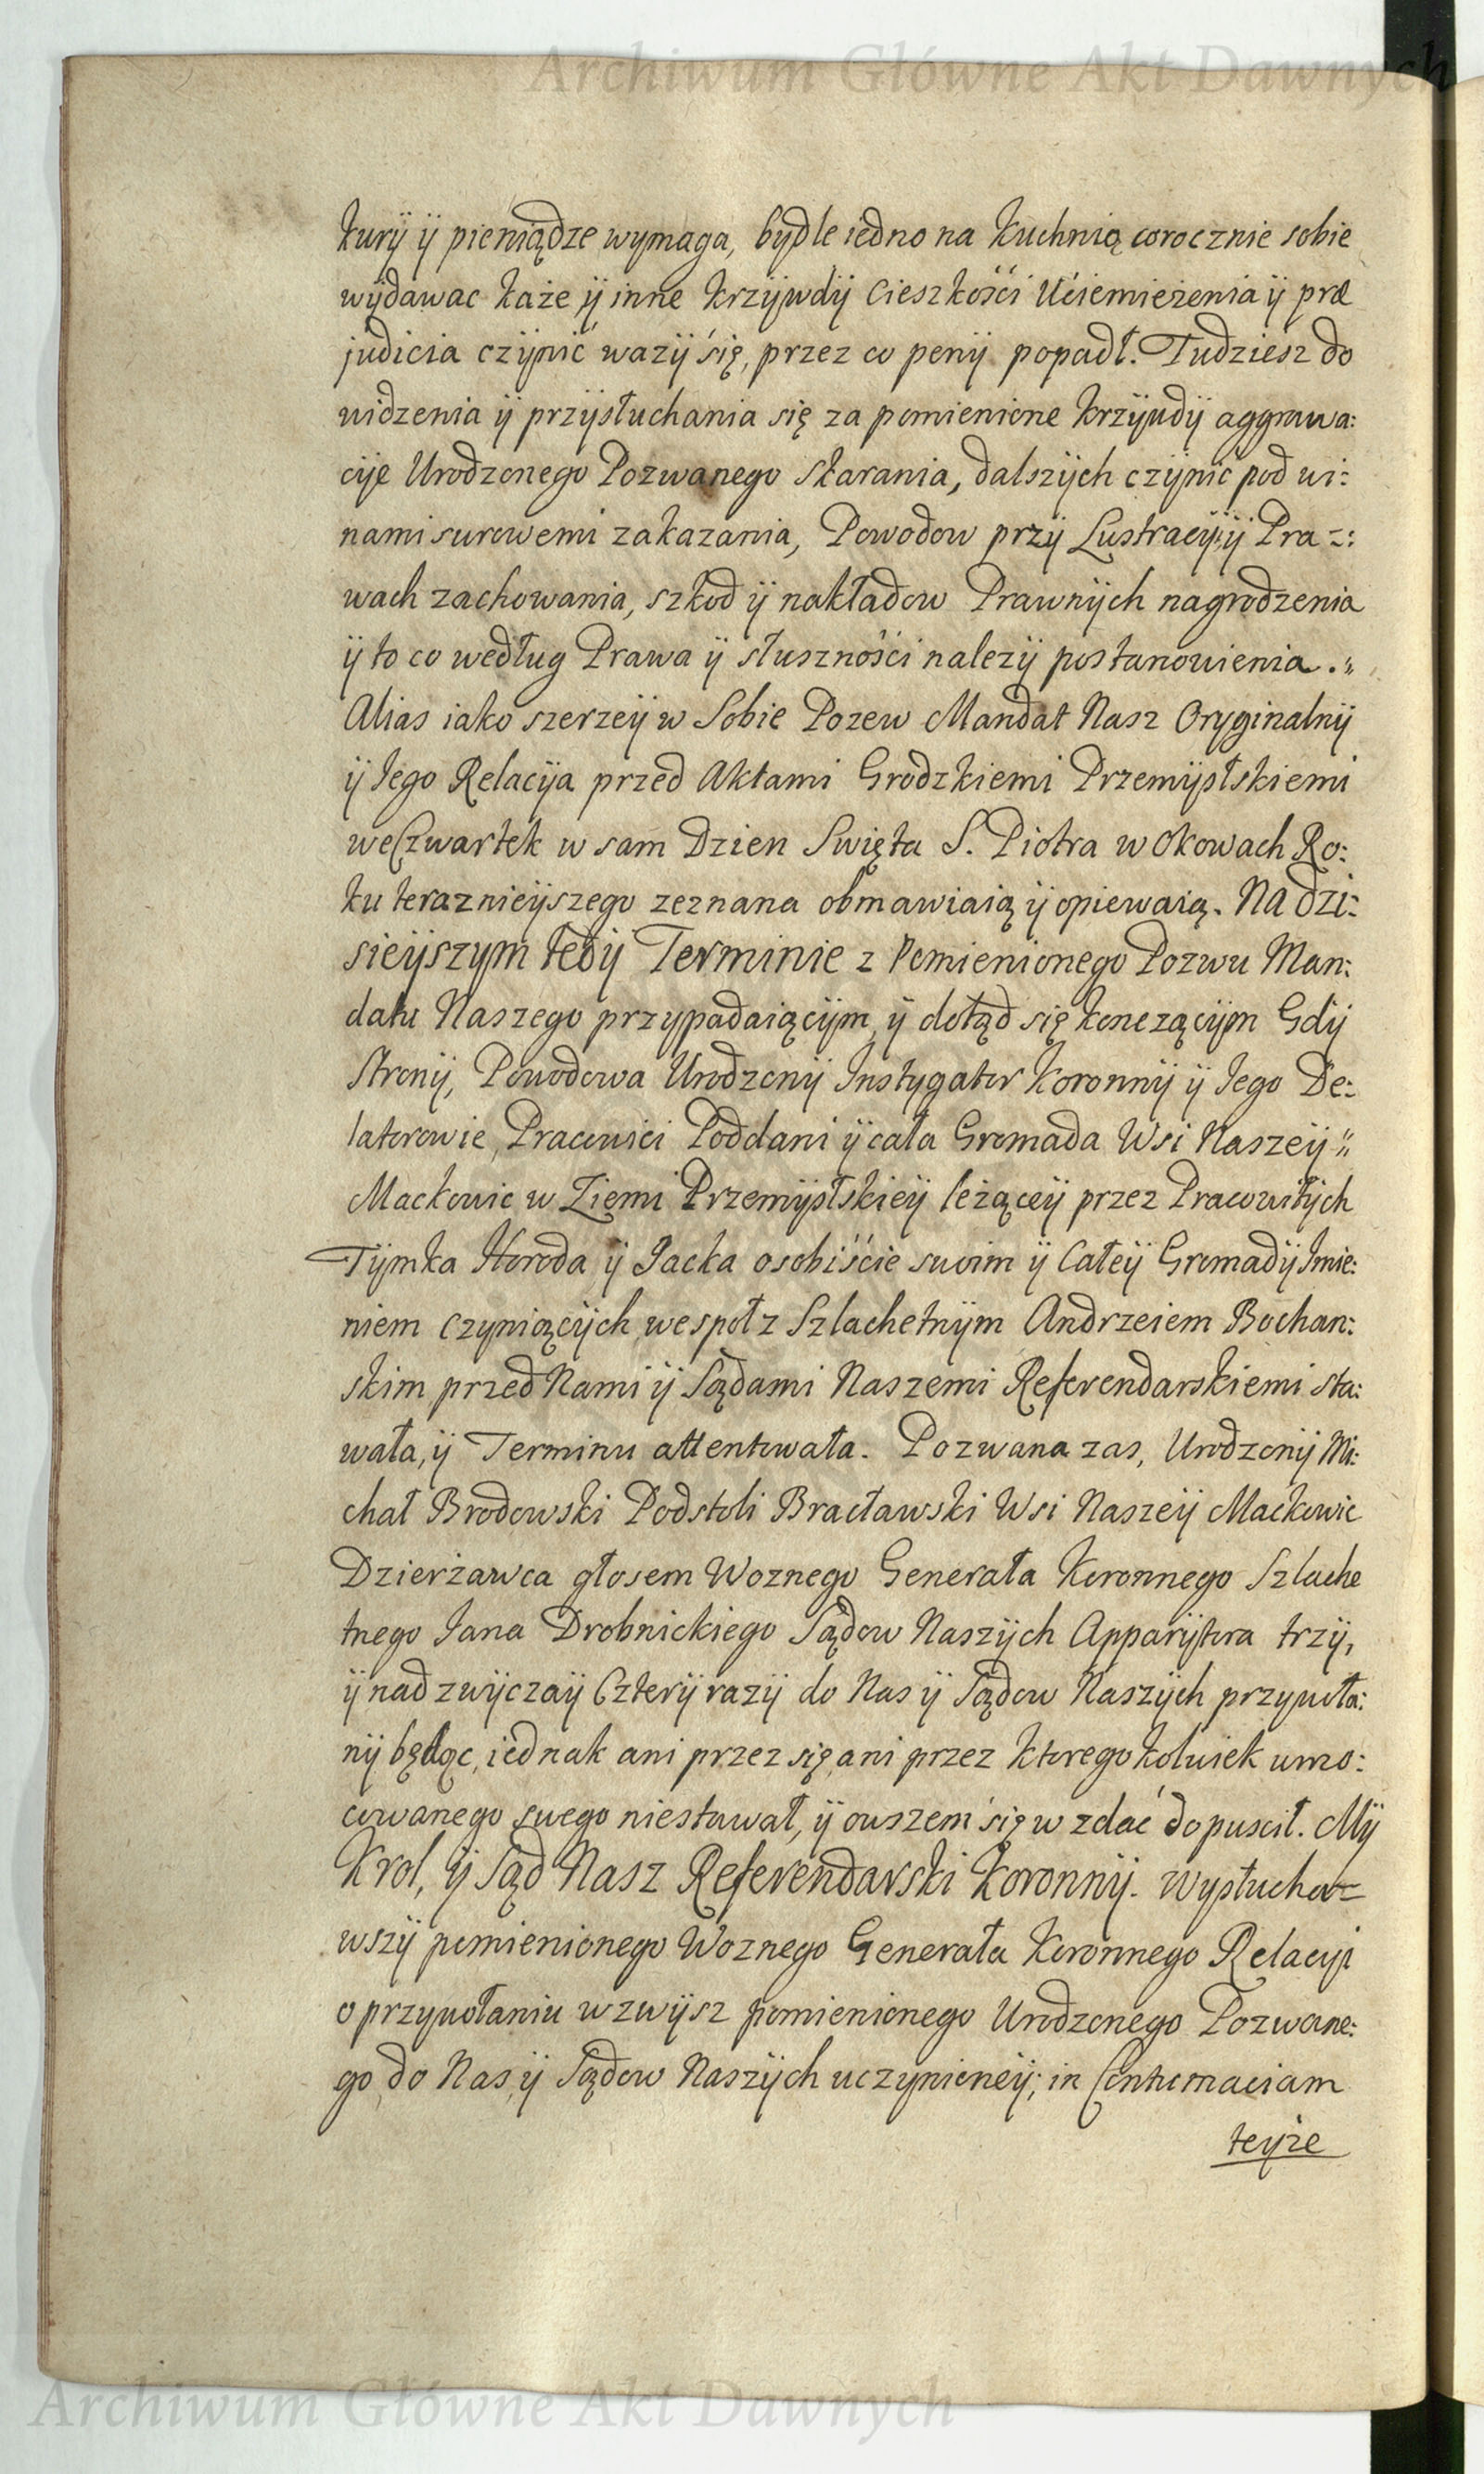 Archiwum Główne Akt Dawnych
kurÿ ÿ pieniądze wymaga, bydle iedno na Kuchnią corocznie sobie
wÿdawac każe ÿ inne krzÿwdÿ Cieszkości Uciemieżenia ÿ præ
judicia czÿnić wazÿ się, przez co penÿ popadł. Tudziesz do
widzenia ÿ przÿsłuchania się za pomienione krzÿwdÿ aggrawa:
cije Urodzonego Pozwanego skarania, dalszÿch czÿnić pod wi:
nami surowemi zakazania, Powodow przÿ Lustracÿi ÿ Pra-:
wach zachowania, szkod ÿ nakładow Prawnÿch nagrodzenia
ÿ to co według Prawa ÿ słuszności nalezÿ postanowienia.„
Alias iako szerzeÿ w Sobie Pozew Mandat Nasz Oryginalnÿ
ÿ Jego Relacÿa przed Aktami Grodzkiemi Przemÿslskiemi
weCzwartek w sam Dzien Swięta S. Piotra w Okowach Ro:
ku teraznieÿszego zeznana obmawiaią ÿ opiewaią. Na dzi:
sieÿszym tedÿ Terminie z Pomienionego Pozwu Man:
datu Naszego przypadaiącÿm, ÿ dotąd się konczącÿm Gdÿ
Stronÿ, Powodowa Urodzonÿ Instygator Koronnÿ ÿ Jego De:
latorowie, Pracowici Poddani ÿ cała Gromada Wsi Naszeÿ„
Mackowic w Ziemi Przemÿslskieÿ leżąceÿ przez Pracowitÿch
Tÿmka Horoda ÿ Jacka osobiście swoim ÿ Całeÿ Gromadÿ Imie:
niem Czyniącÿch wespoł z Szlachetnÿm Andrzeiem Bochan:
skim przed Nami ÿ Sądami Naszemi Referendarskiemi sta:
wała, ÿ Terminu attentowała. Pozwana zas, Urodzonÿ Mi:
chał Brodowski Podstoli Bracławski Wsi Naszeÿ Mackowic
Dzierżawca głosem Woznego Generała Koronnego Szlache
tnego Jana Drobnickiego Sądow Naszÿch Apparÿtora trzÿ,
ÿ nad zwÿczaÿ Czterÿ razÿ do Nas ÿ Sądow Naszÿch przywoła:
nÿ będąc, iednak ani przez się, ani przez ktorego kolwiek umo:
cowanego swego niestawał, ÿ owszem się w zdać dopuscił. Mÿ
Krol, ÿ Sąd Nasz Referendarski Koronnÿ. Wysłucha=
wszÿ pomienionego Woznego Generała Koronnego Relacyi
o przywołaniu wzwÿsz pomienionego Urodzonego Pozwane:
go, do Nas, ÿ Sądow Naszÿch uczynioneÿ; in Contumaciam
teyże
Archiwum Główne Akt Dawnych